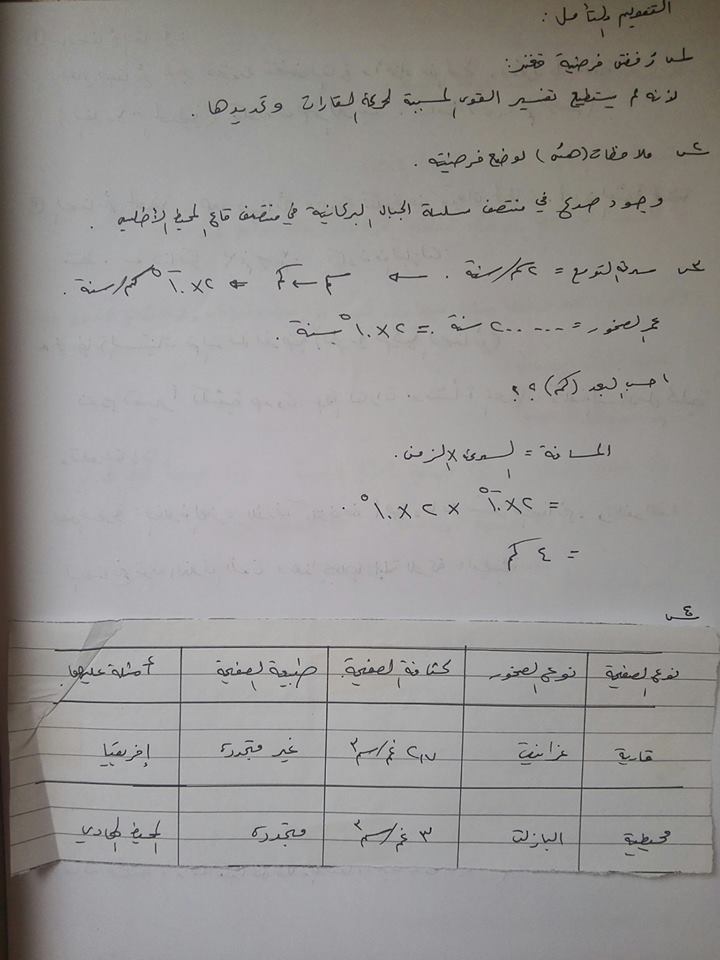 التقويم والتأمل :
س١ رفض فرضية فغنر :
لأنه لم يستطيع تفسير القوى المسببة لحركة القارات وتحديدها .
س٢ ملاحظات (هس) لوضع فرضيته .
وجود صدع في منتصف سلسلة الجبال البركانية في منتصف قاع المحيط الأطلسي .
س٣ سرعة التوسع = ٢سم/سنة . ← سم ← كم ← ٢×١٠⁻⁵ كم/سنة .
عمر الصخور = ٢٠٠٠٠٠ سنة = ٢×١٠⁵ سنة .
احسب البعد (كم) ؟؟
المسافة = السرعة × الزمن .
= ٢×١٠⁻⁵ × ٢×١٠⁵ .
= ٤ كم
س٤
نوع الصفيحة نوع الصخور كثافة الصفيحة طبيعة الصفيحة أمثلة عليها
قارية غرانيت ٢,٧ غم/سم٣ غير متجددة إفريقيا
محيطية البازلت ٣ غم/سم٣ متجددة المحيط الهادي